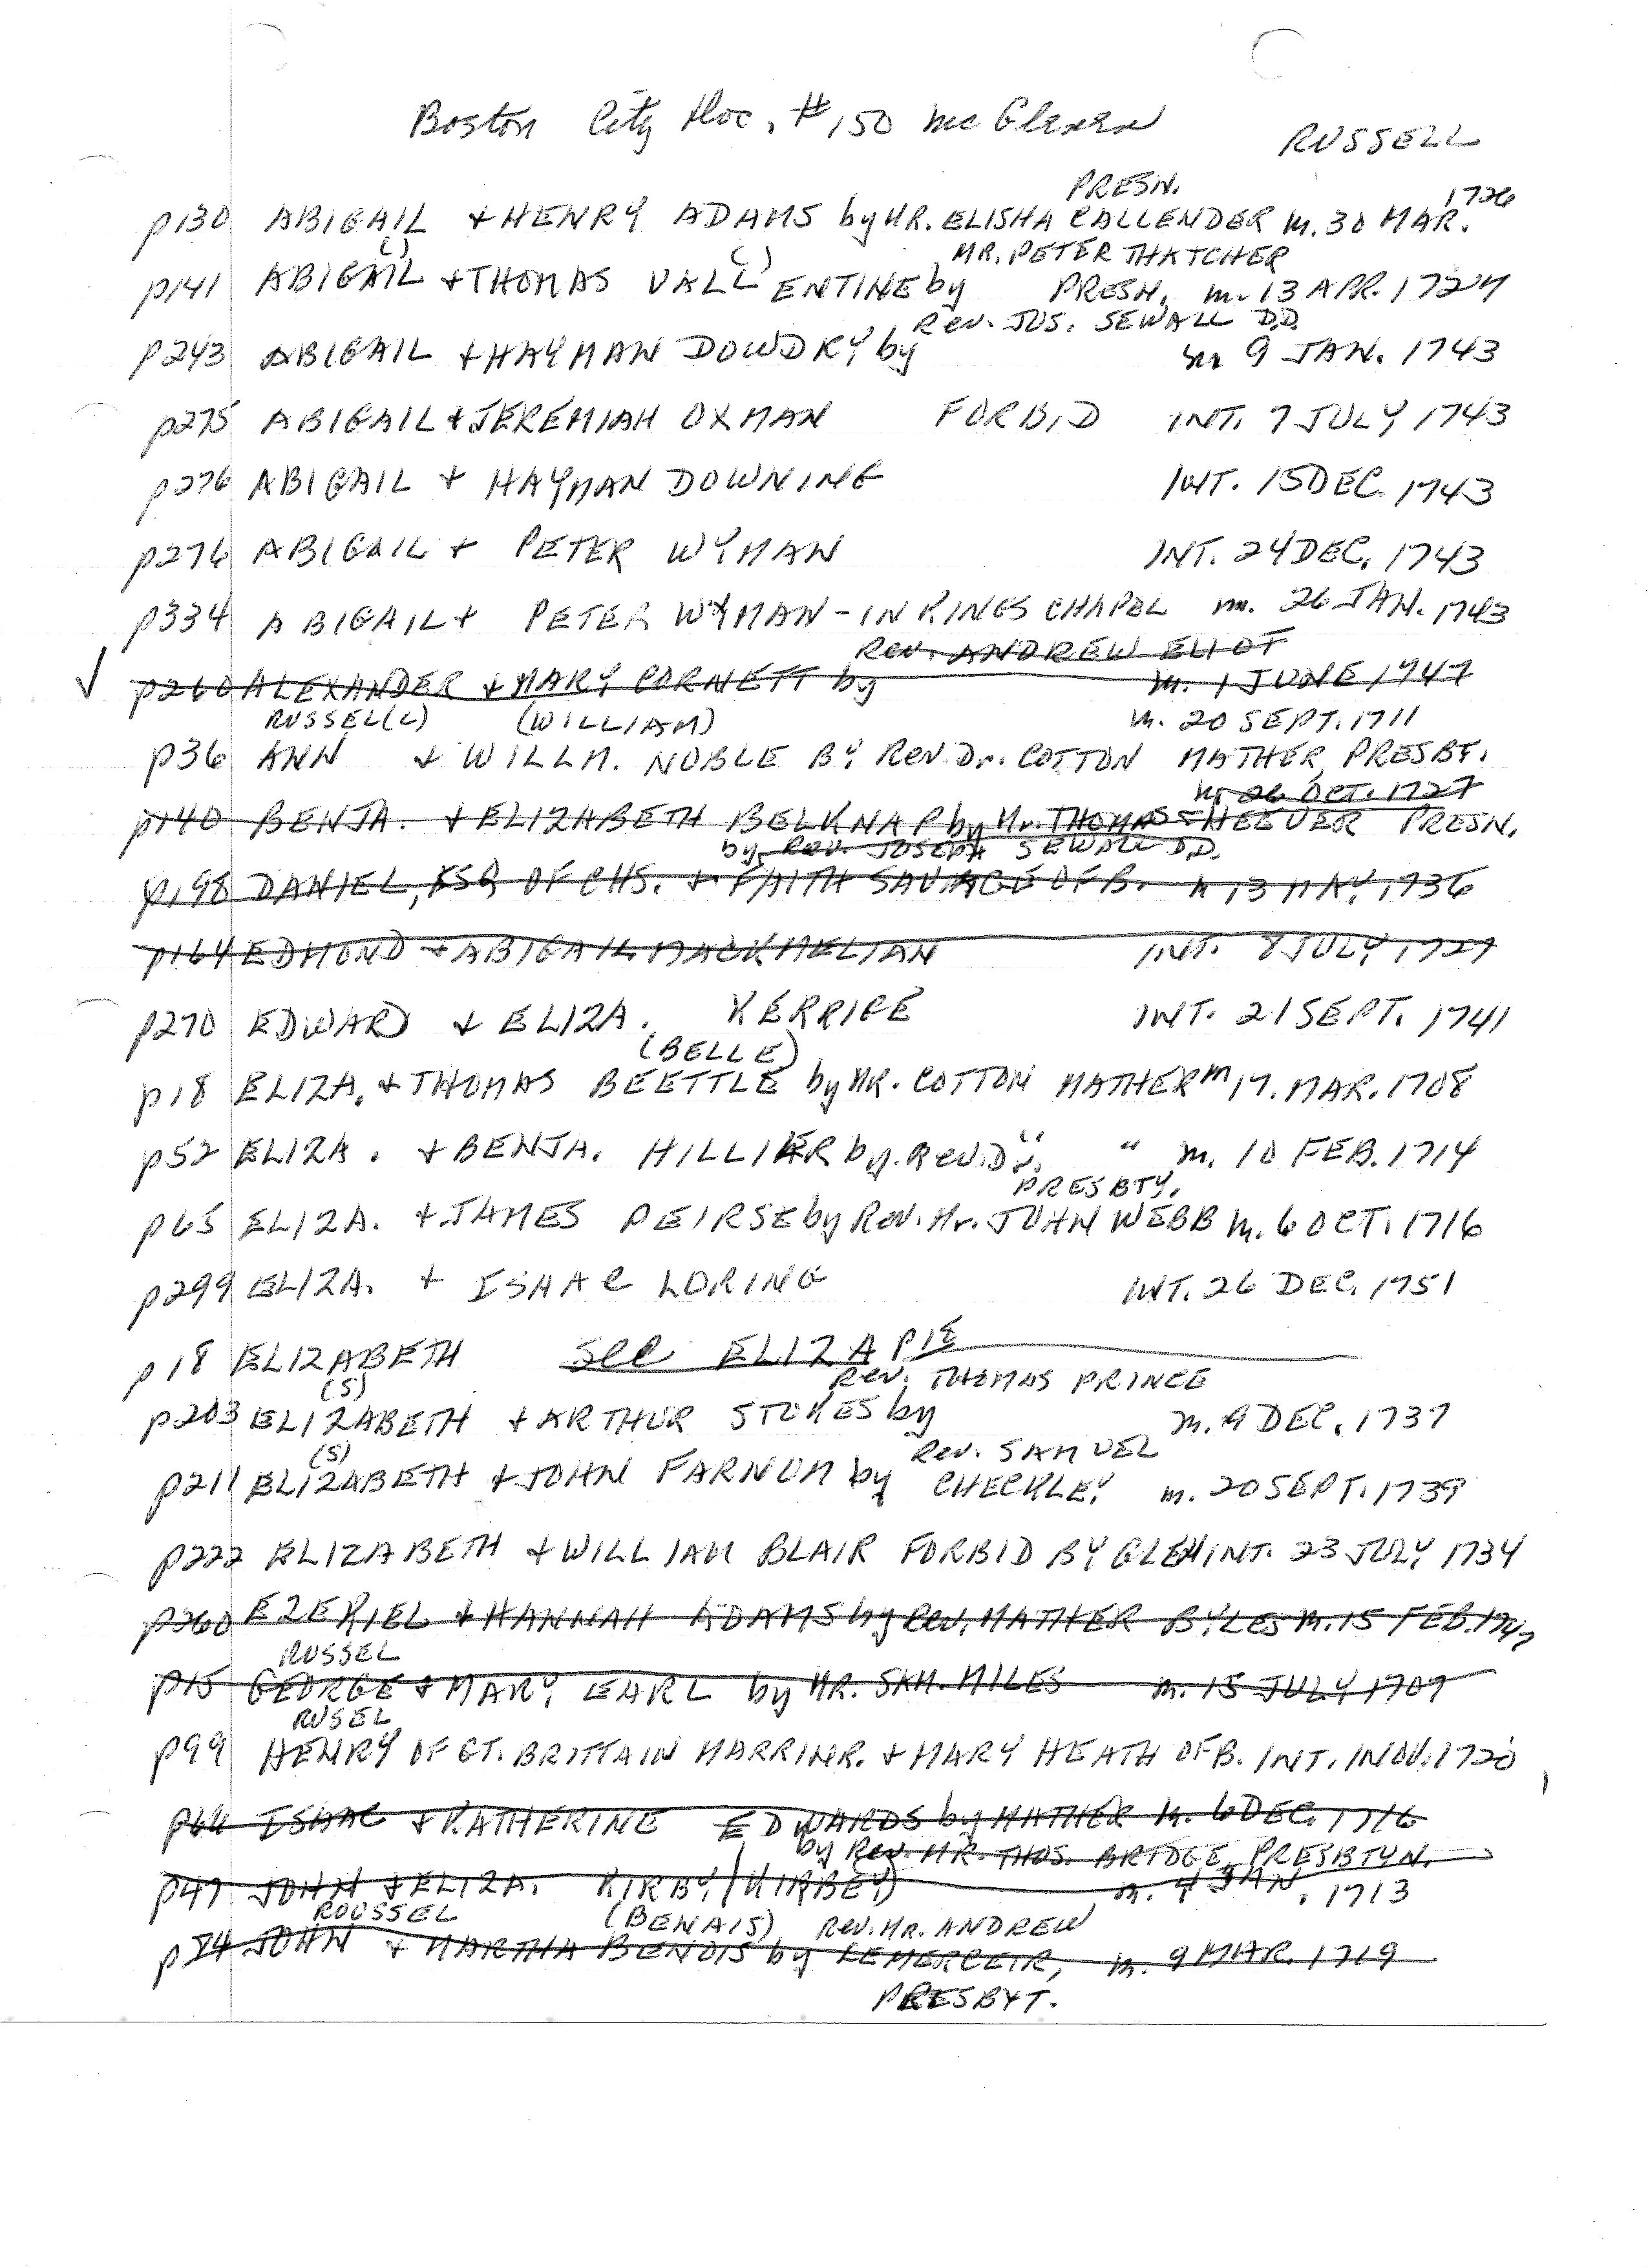 Boston City Doc. #150 McGlenen
RUSSELL
PRESN. 1726
p130 ABIGAIL + HENRY ADAMS by MR. ELISHA CALLENDER m. 30 MAR.
( ) ( ) MR. PETER THATCHER
p141 ABIGAIL + THOMAS VALL ENTINE by PRESN. m. 13 APR. 1727
Rev. JOS. SEWALL D.D.
p243 ABIGAIL + HAYMAN DOWDRY by m 9 JAN. 1743
p275 ABIGAIL + JEREMIAH OXMAN FORBID INT. 7 JULY 1743
p276 ABIGAIL + HAYMAN DOWNING INT. 15 DEC. 1743
p276 ABIGAIL + PETER WYMAN INT. 24 DEC. 1743
p334 ABIGAIL + PETER WYMAN - IN KINGS CHAPEL m. 26 JAN. 1743
Rev. ANDREW ELIOT
✓ p260 ALEXANDER + MARY CORNETT by m. 1 JUNE 1747
RUSSEL(L) (WILLIAM) m. 20 SEPT. 1711
p36 ANN + WILLM. NOBLE BY Rev. Dr. COTTON MATHER, PRESBT.
m 26 OCT. 1727
p140 BENJA. + ELIZABETH BELKNAP by Mr. THOMAS CHEEVER PRESN.
by Rev. JOSEPH SEWALL D.D.
p198 DANIEL, ESQ OF CHS. + FAITH SAVAGE OF B. m 13 MAY 1736
p164 EDMOND + ABIGAIL MACKMELIAN INT. 8 JULY 1727
p270 EDWARD + ELIZA. KERRICE INT. 21 SEPT. 1741
(BELLE)
p18 ELIZA. + THOMAS BEETTLE by MR. COTTON MATHER m 17. MAR. 1708
p52 ELIZA. + BENJA. HILLIER by Rev. Dr. " " m. 10 FEB. 1714
PRESBTY.
p65 ELIZA. + JAMES PEIRSE by Rev. Mr. JOHN WEBB m. 6 OCT. 1716
p299 ELIZA. + ISAAC LORING INT. 26 DEC. 1751
p18 ELIZABETH See ELIZA P18
(S) Rev. THOMAS PRINCE
p203 ELIZABETH + ARTHUR STOKES by m. 9 DEC. 1737
(S) Rev. SAMUEL
p211 ELIZABETH + JOHN FARNUM by CHECKLEY m. 20 SEPT. 1739
p222 ELIZABETH + WILLIAM BLAIR FORBID BY INT. 23 JULY 1734
p260 EZEKIEL + HANNAH ADAMS by Rev. MATHER BYLES m. 15 FEB. 1747
RUSSEL
p15 GEORGE + MARY EARL by MR. SAM. MILES m. 15 JULY 1707
RUSEL
p99 HENRY OF GT. BRITTAIN MARRINR. + MARY HEATH OF B. INT. 1 NOV. 1720
p66 ISAAC + KATHERINE EDWARDS by MATHER m. 6 DEC. 1716
by Rev. MR. THOS. BRIDGE, PRESBTYN.
p47 JOHN + ELIZA. KIRBY/(KIRBEY) m. 4 JAN. 1713
ROUSSEL (BENAIS) Rev. Mr. ANDREW
p74 JOHN + MARTHA BENOIS by LEMERCEIR, m. 9 MAR. 1719
PRESBYT.